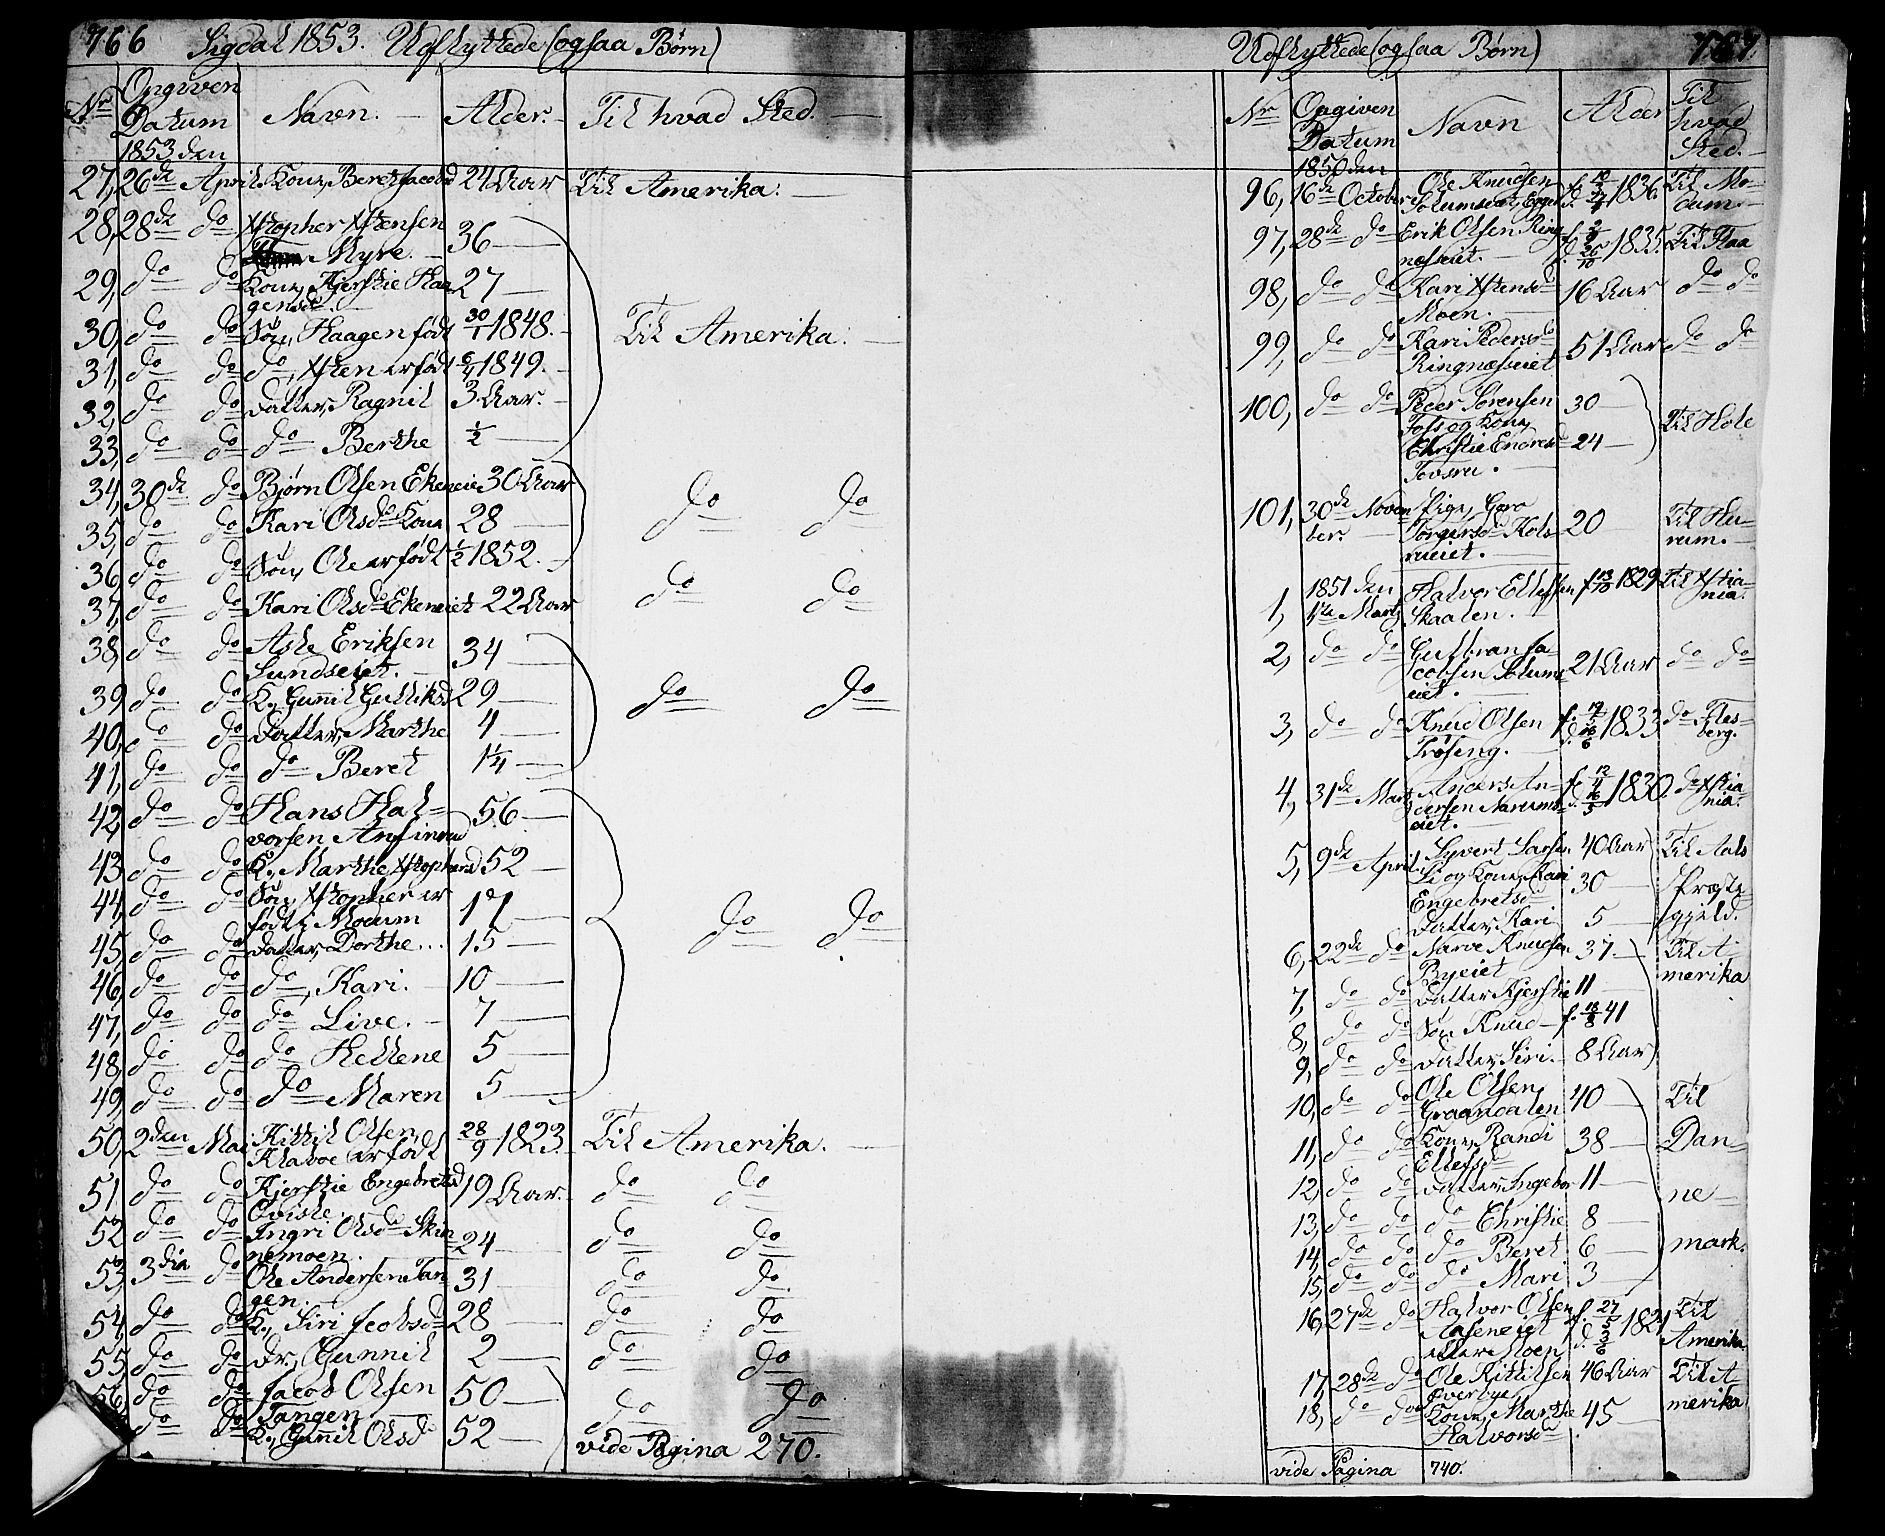 766 Sigdal 1853. Udflyttede (ogsaa Børn)
Nr Opgiven Datum 1853 den Navn. Alder. Til hvad Sted.
27, 26de April Kone, Beret Jacobsd 24 Aar Til Amerika.
28, 28de do Xstopher Xstensen
Myre. 36
29, do do Kone, Kjerstie Haa 27
gensd.
30, do do Søn, Haagen født 30/1 1848. Til Amerika.
31, do do do, Xsten er født 6/4 1849.
32, do do Datter, Ragnil 3 Aar.
33, do do do Berthe 1/2
34, 30de do Bjørn Olsen Ekeneie 30 Aar
35, do do Kari Olsd Kone 28 do do
36, do do Søn, Ole er født 1/2 1852.
37, do do Kari Olsd Ekeneiet 22 Aar do do
38, do do Asle Eriksen 34
Lundseiet.
39, do do K., Gunnil Gulliksd 29 do do
40, do do Datter, Marthe 4
41, do do do Beret 1 1/4
42, do do Hans Hal- 56
vorsen Anfinrud
43, do do K., Marthe Xstophersd 52
44, do do Søn, Xstopher er 17
født i Modum do do
45, do do Datter, Dorthe... 15
46, do do do, Kari. 10
47, do do do Live. 7
48, do do do Hellene 5
49, do do do Maren 5
50, 2den Mai Kittil Olsen 28/9 1823 Til Amerika.
Kladoe er født
51, do do Kjerstie Engebretsd 19 Aar. do do
Qvisle.
52, do do Ingri Olsd Skin 24 do do
nemoen.
53, 3die do Ole Andersen Tan 31 do do
gen.
54, do do K., Siri Jcobsd 28 do do
55, do do Dr., Gunnil 2 do do
56, do do Jacob Olsen 50 do do
Tangen
do do K., Gunnil Olsd 52
vide Pagina 270.
Udflyttede (ogsaa Børn) 767
Nr Opgiven Datum 1850 den Navn Alder Til hvad Sted.
96, 16de October Ole Knudsen 1836. Til Mo-
Solumseiet, dum.
97, 28de do Erik Olsen Ring 1835. Til Flaa
næsseiet.
98, do do Kari Xstensd 16 Aar do do
Moen.
99, do do Kari Pedersd 51 Aar do do
Ringnæsseiet
100, do do Peder Sørensen 30
Foss og Kone, Til Hole
Christie Endresd 24
Tovsru.
101, 30de Novem Pige, Goro 20 Til Hu-
ber. Torgersd Kols rum.
rueiet.
1851 den Halvor Ellefsen f 13/10 1829 Til Xstia-
1, 1ste Marts Skaalen. nia.
2, do do Gulbran Ja- 21 Aar do do
cobsen Solums
eiet.
3, do do Knud Olsen 1833 do Fles-
Frøseng. berg.
4, 31de Marts Anders An- 1830. do Xstia-
dersen Narums nia.
eiet.
5, 9de April Syvert Larsen 40 Aar Til Aals
Li og Kone, Kari 30 Præste
Engebretsd
Datter, Kari 5 gjeld.
6, 22de do Narve Knudsen 37 Til A-
Byeiet merika
7, do do Datter Kjerstie 11
8, do do Søn Knud f. 18/8 41
9, do do Datter, Siri. 8 Aar
10, do do Ole Olsen 40 Til
Graandalen
11, do do Kone, Randi 38 Dan-
Ellefsd
12, do do Datter, Ingebor 11 ne-
13, do do do Christie 8
14, do do do Beret 6 mark.
15, do do do Mari 3
16, 27de do Halvor Olsen 1821 Til
Aaseneiet Amerika
eller Moen
17, 28de do Ole Kittilsen 46 Aar Til A-
Øverbye
18, do do Kone, Marthe 45 merika
Halvorsd
vide Pagina 740.